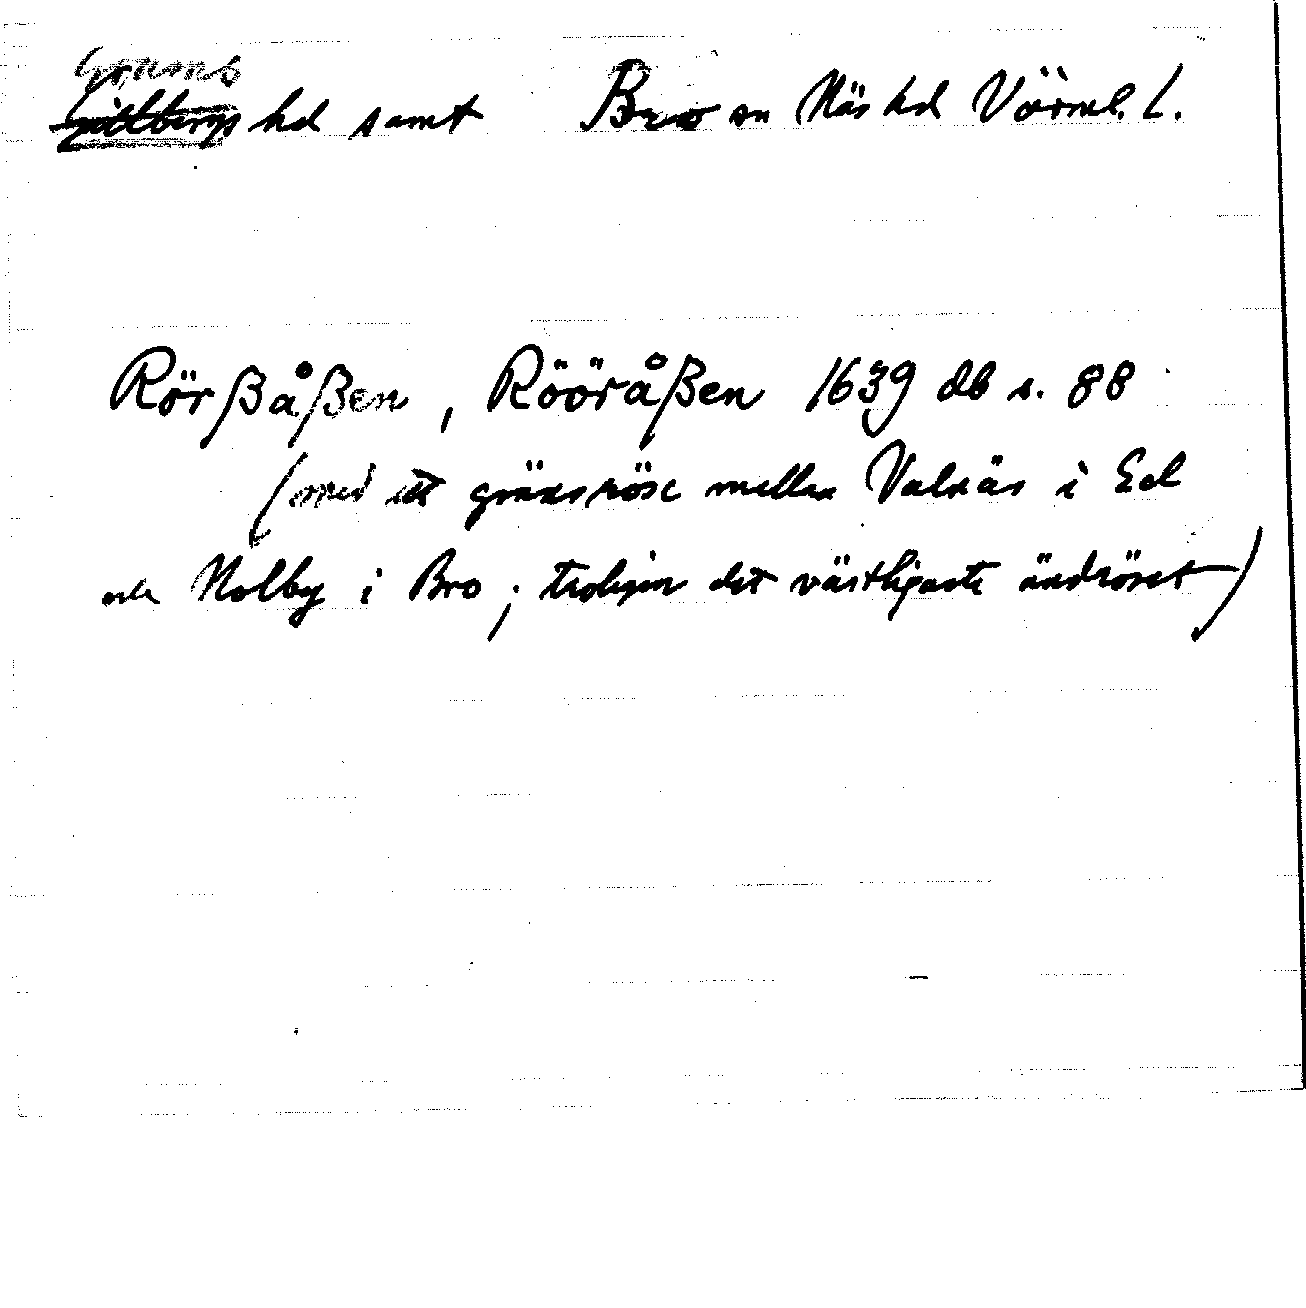 Grums
Gillbergs hd samt Bro sn Näs hd Värml. L.
Rörßåßen, Rööråßen 1639 db s. 88
(med ett gränsröse mellan Valnäs i Ed
och Nolby i Bro; troligen det västligaste ändröset)